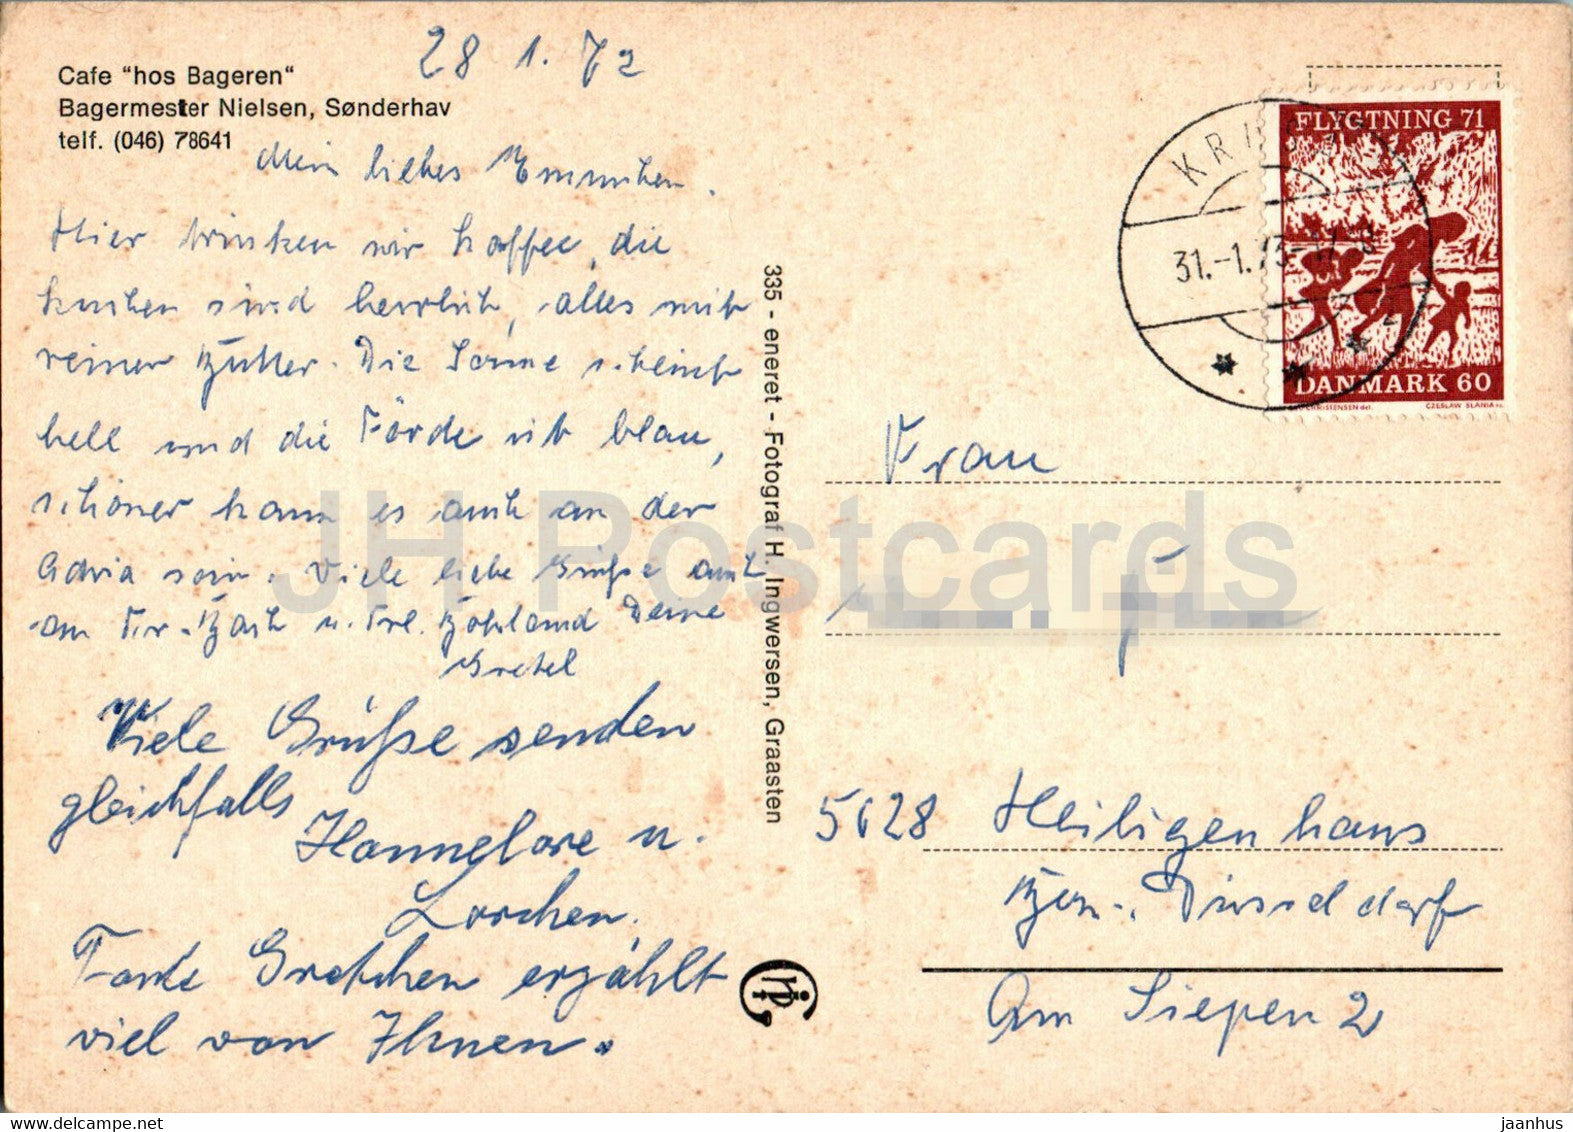 Cafe "hos Bageren"
Bagermester Nielsen, Sønderhav
telf. (046) 78641
28 1. 72
Mein liebes Emmchen.
Hier trinken wir Kaffee, die
Kuchen sind herrlich, alles mit
reiner Butter. Die Sonne scheint
hell und die Förde ist blau,
schöner kann es auch an der
Adria sein. Viele liebe Grüße auch
an Frr. Bach u. Frl. Bohland Deine
Gretel
Viele Grüße senden
gleichfalls
Hannelore u.
Lorchen.
Tante Gretchen erzählt
viel von Ihnen.
335 - eneret - Fotograf H. Ingwersen, Graasten
FLYGTNING 71
DANMARK 60
CHRISTENSEN del.
CZESLAW SLANIA sc.
KRUSÅ
31.-1.73-17
Frau
5628 Heiligenhaus
Bez. Düsseldorf
Am Siepen 2
JH Postcards
HIPPOSTCARD.COM
jaanhus